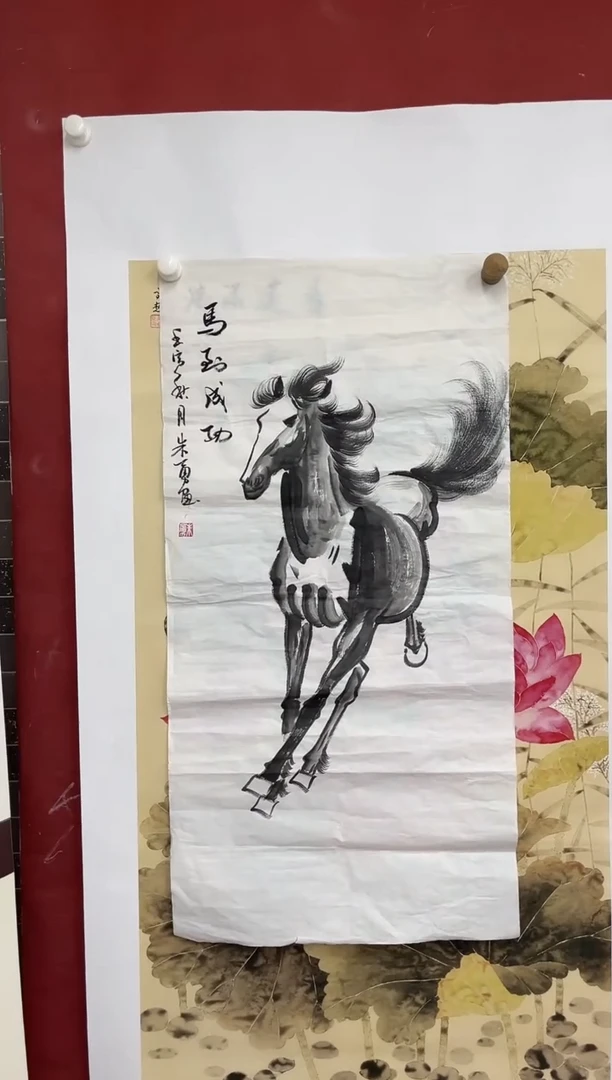 馬到成功
壬寅秋月朱勇画